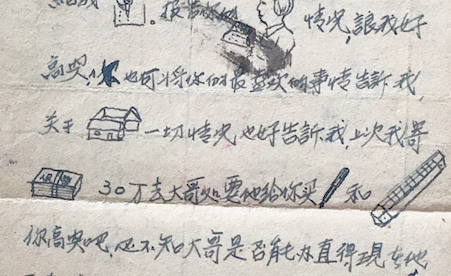 情况,讓我好
高兴,你也可將你们最喜欢的事情告訴我,
关于 一切情况也好告訴我,上次我哥
30万去大哥处要他给你买 和
你高兴吧,也不知大哥是否能办直得現在他